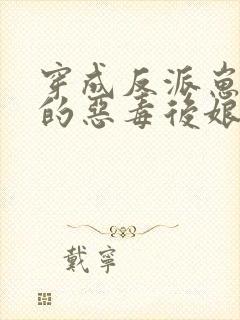 穿成反派崽
的惡毒後娘
戴寧